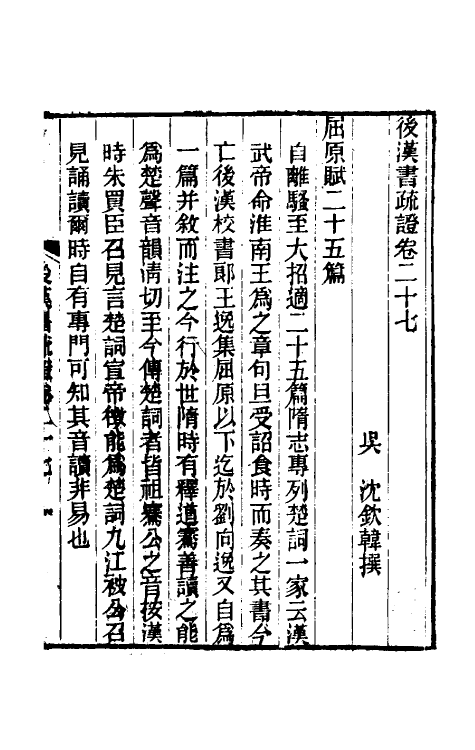 後漢書疏證卷二十七
吳 沈欽韓撰
屈原賦二十五篇
自離騷至大招適二十五篇隋志專列楚詞一家云漢
武帝命淮南王爲之章句旦受詔食時而奏之其書今
亡後漢校書郎王逸集屈原以下迄於劉向逸又自爲
一篇并敘而注之今行於世隋時有釋道騫善讀之能
爲楚聲音韻淸切至今傳楚詞者皆祖騫公之音按漢
時朱買臣召見言楚詞宣帝徵能爲楚詞九江被公召
見誦讀爾時自有專門可知其音讀非易也
後漢書疏證卷二十七 一